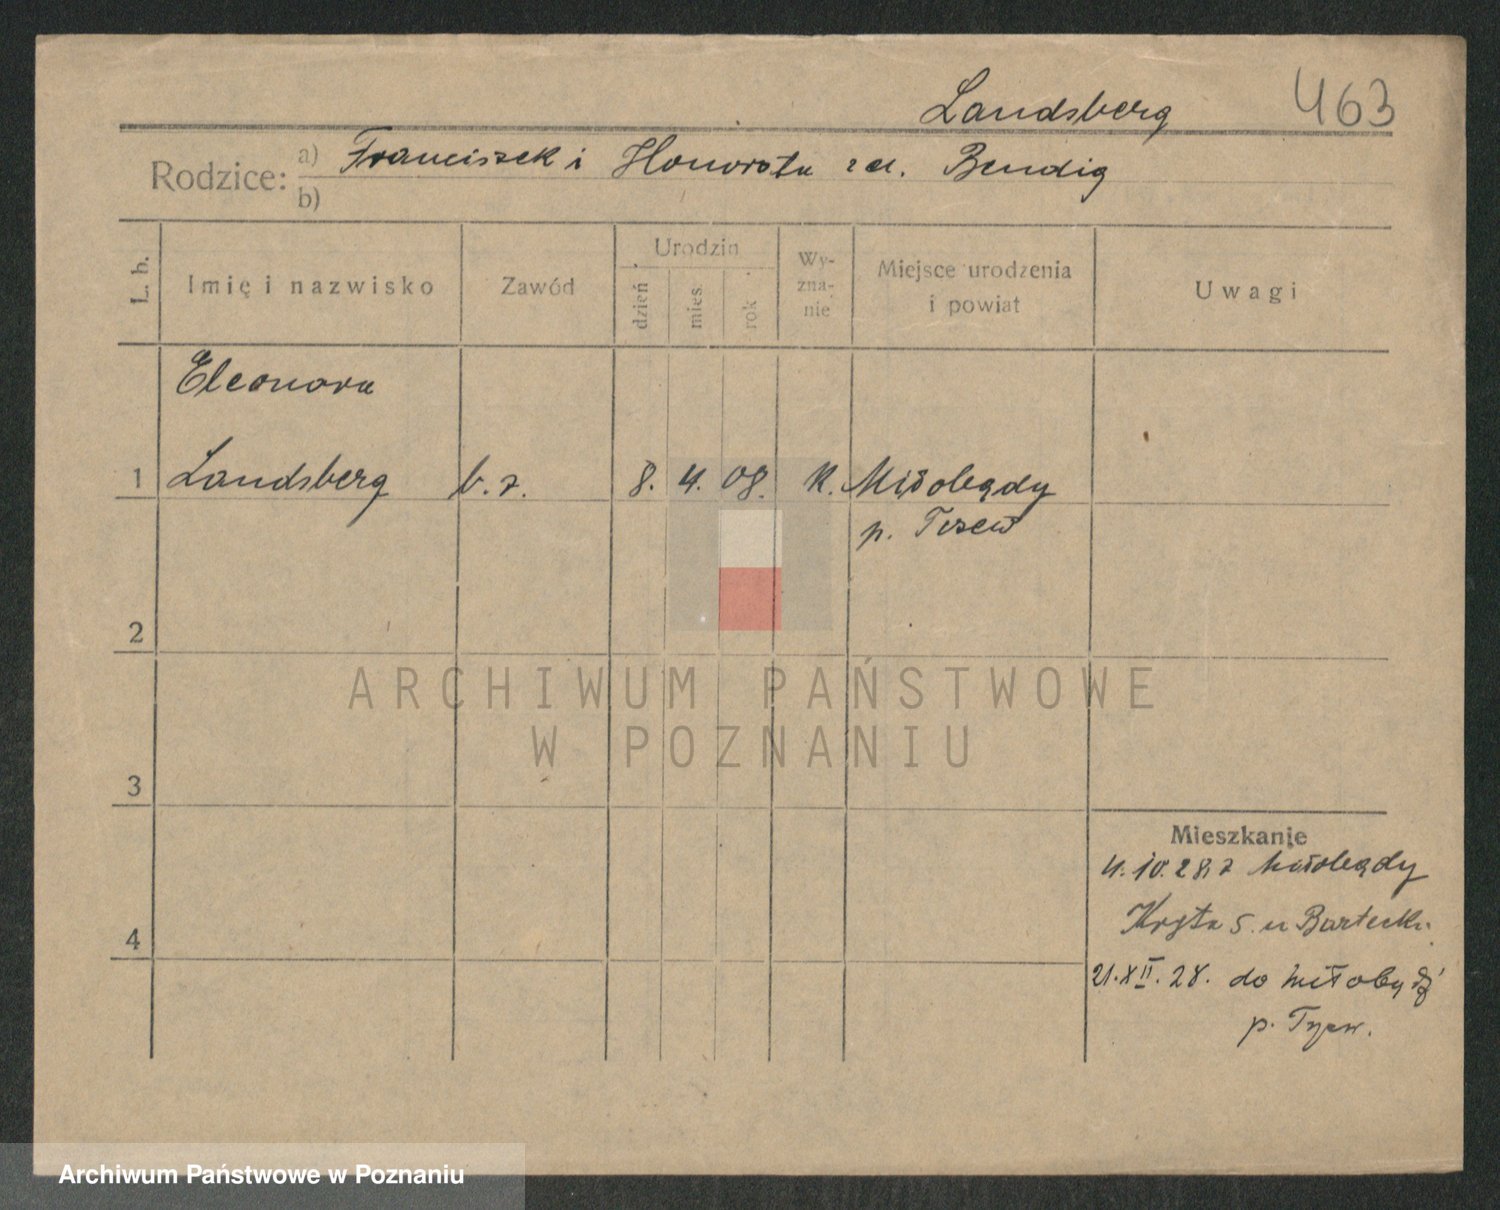 Landsberg 463
Rodzice: a) Franciszek i Honorata z d. Bendig
b)
L. b.
Imię i nazwisko
Zawód
Urodzin
dzień
mies.
rok
Wy-
zna-
nie
Miejsce urodzenia
i powiat
Uwagi
Eleonora
1 Landsberg b. z. 8. 4. 08. K. Miłobądy
p. Tczew
2
ARCHIWUM PAŃSTWOWE
W POZNANIU
3
Mieszkanie
4. 10. 28 z Miłobądy
Kręta 5. u Bartecki
4
21. XII. 28. do Miłobądź
p. Tczew.
Archiwum Państwowe w Poznaniu